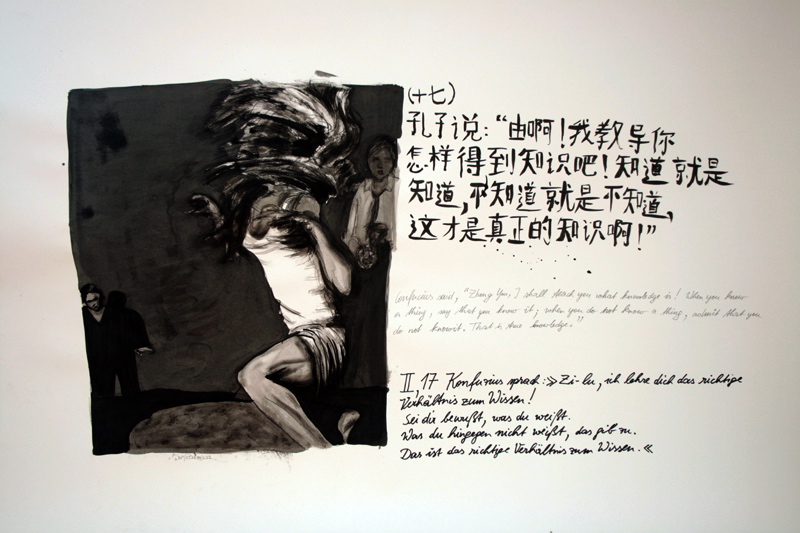 (十七)
孔子说:“由啊!我教导你
怎样得到知识吧!知道就是
知道,不知道就是不知道,
这才是真正的知识啊!”
Confucius said, "Zhong You, I shall teach you what knowledge is! When you know
a thing, say that you know it; when you do not know a thing, admit that you
do not know it. That is true knowledge."
II, 17 Konfuzius sprach: »Zi-lu, ich lehre dich das richtige
Verhältnis zum Wissen!
Sei dir bewußt, was du weißt.
Was du hingegen nicht weißt, das gib zu.
Das ist das richtige Verhältnis zum Wissen.«